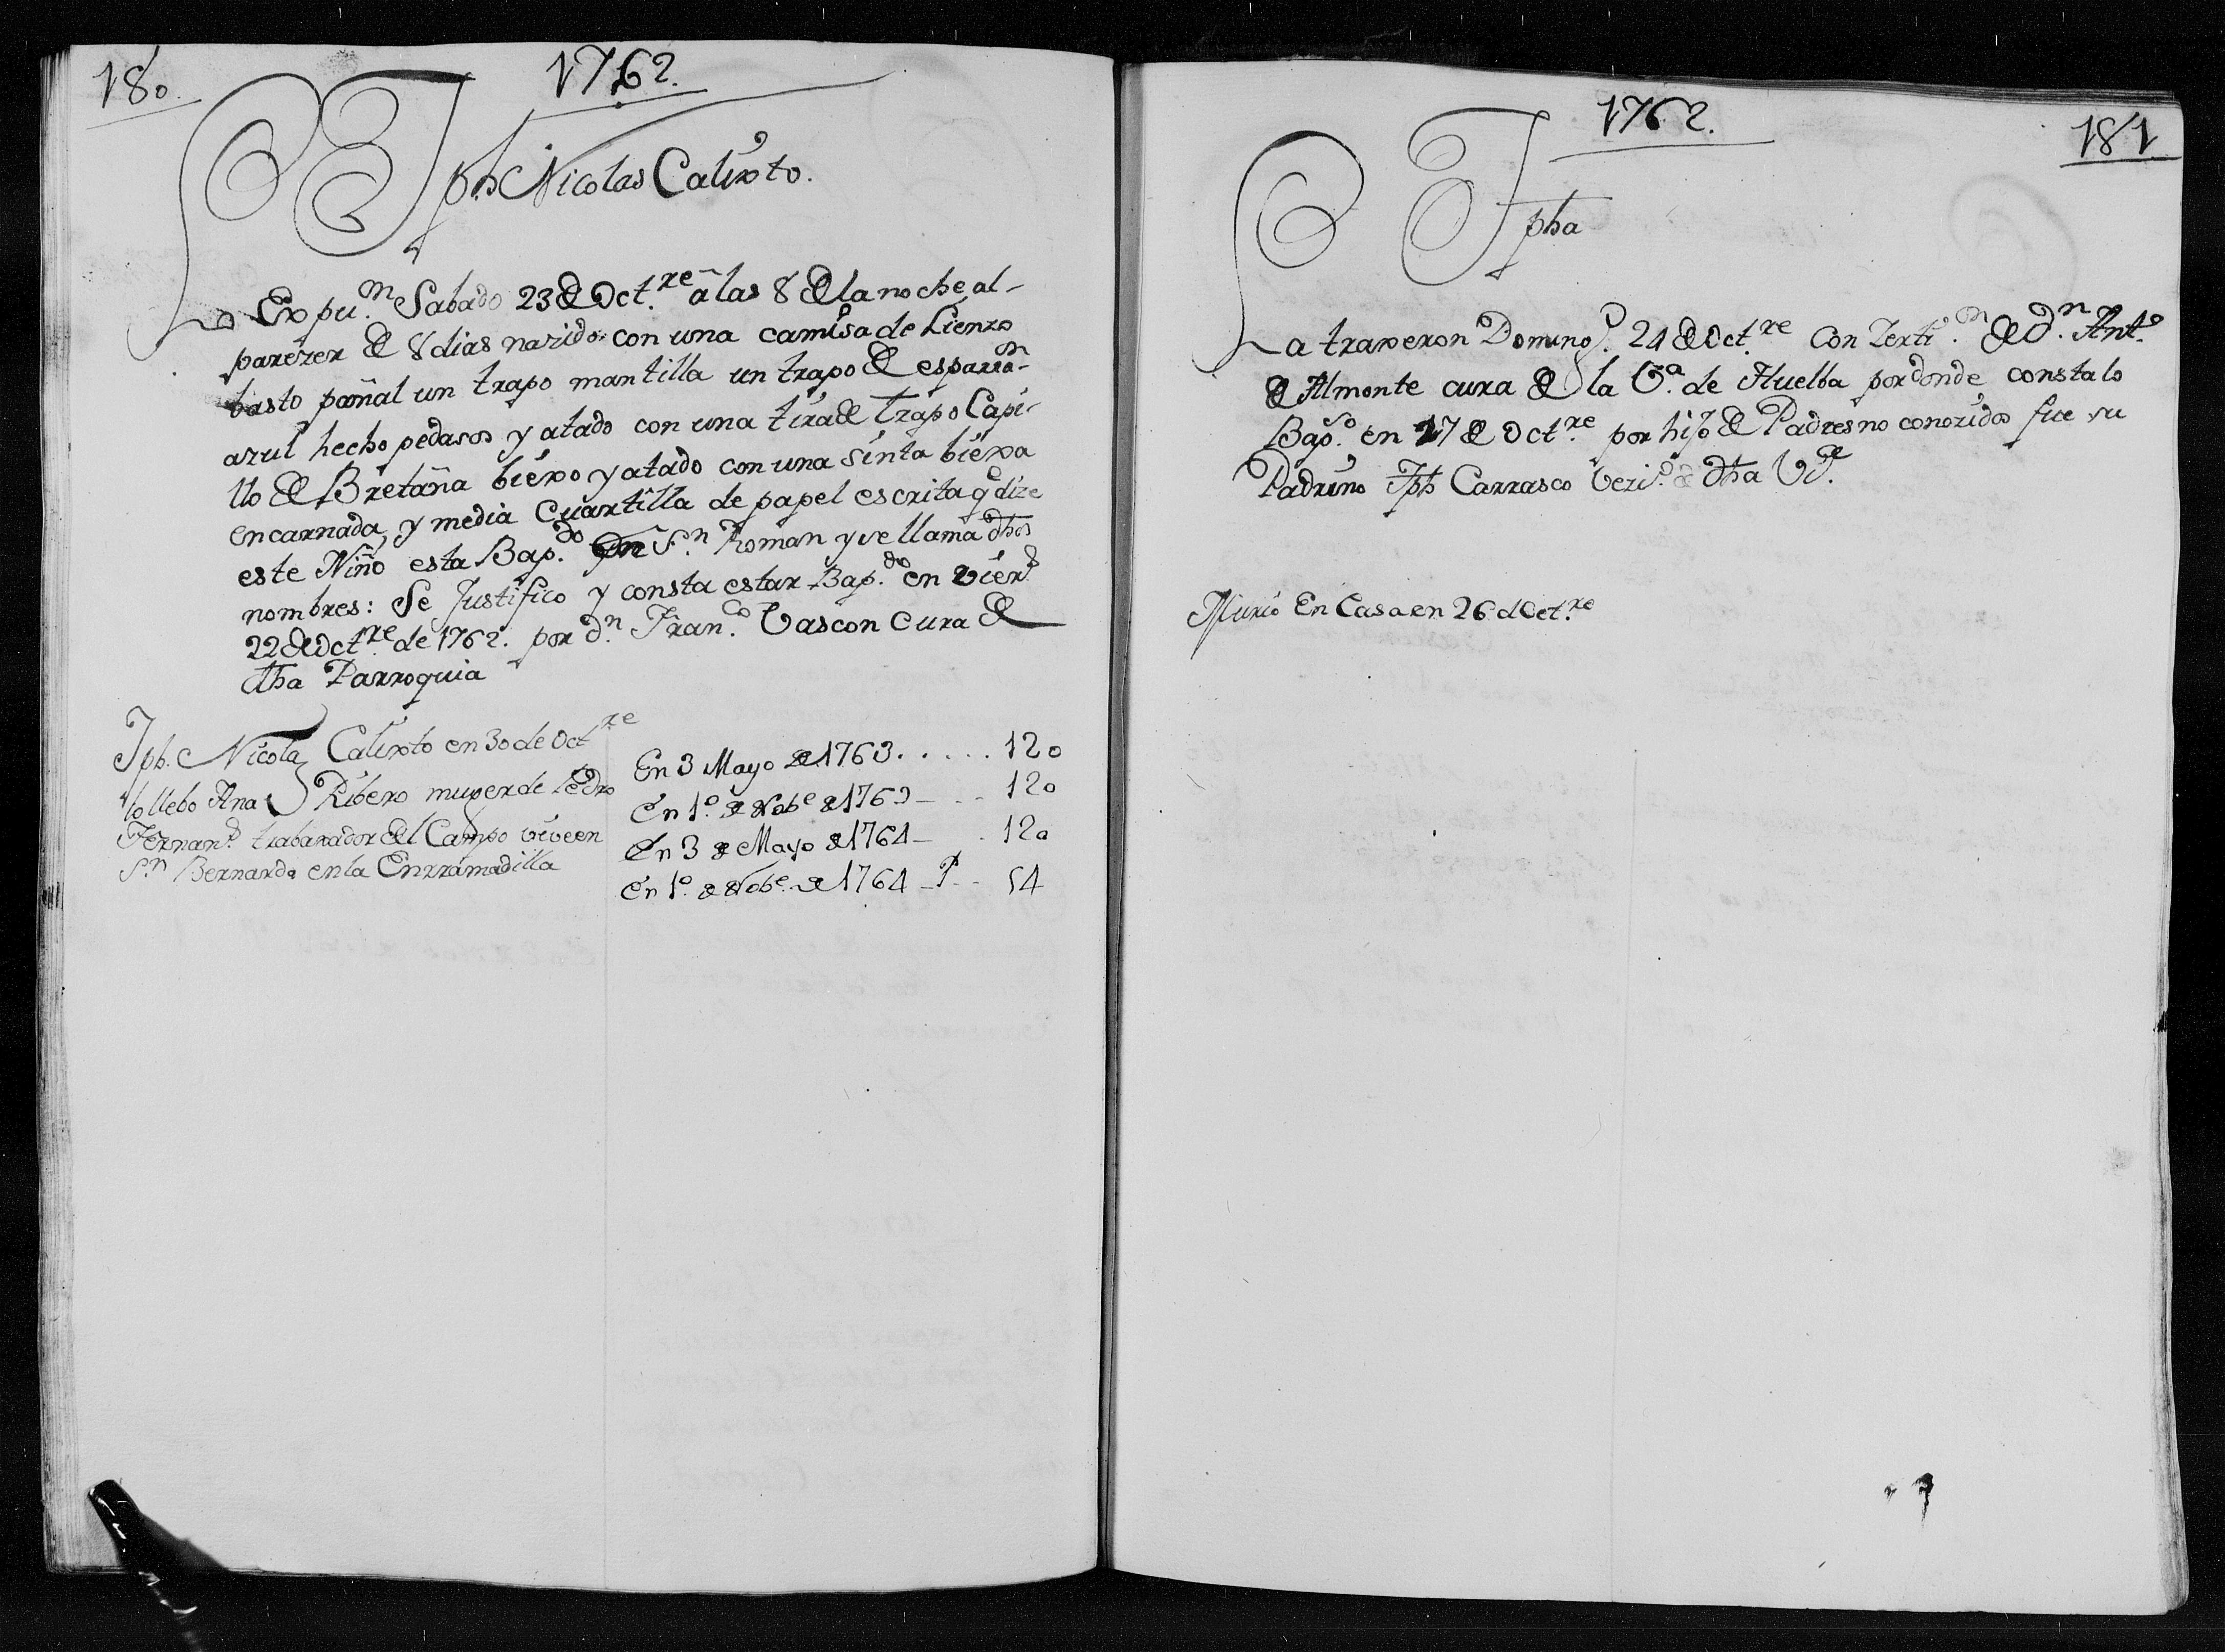 180.
1762.
Jph. Nicolas Calixto.
Lo Expu.n Sabado 23 de Oct.re â las 8 de la noche al-
parezer de 8 dias nazido con una camisa de Lienzo
basto pañal un trapo mantilla un trapo de esparra.n
azul hecho pedasos y atado con una tira de trapo Capi-
llo de Bretaña biexo y atado con una sinta biexa
encarnada, y media Cuartilla de papel escrita q.e dize
este Niño esta Bap.do en S.n Roman y se llama dhos
nombres: Se Justifico y consta estar Bap.do en Viern.s
22 de Oct.re de 1762. por d.n Fran.co Vascon Cura de
dha Parroquia
Jph. Nicolas Calixto en 30 de Oct.re
lo llebo Ana Ribero muxer de Pedro
Fernan.d trabaxador del Campo vive en
S.n Bernardo en la Enrramadilla
En 3 Mayo de 1763. . . . . . 120
En 1.o de Nob.e de 1763 - - - 120
En 3 de Mayo de 1764 - - 120
En 1.o de Nob.e de 1764 - P - - 54
1762.
181
Jpha
La traxeron Doming.o 24 de Oct.re Con Zerti.on de d.n Ant.o
de Almonte cura de la V.a de Huelba por donde consta lo
Bap.so en 17 de Oct.re por hijo de Padres no conozidos fue su
Padrino Jph Carrasco Vezi.o de dha V.a
Murio En Casa en 26 d Oct.re